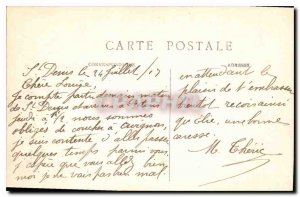 CARTE POSTALE
CORRESPONDANCE
ADRESSE
St Denis le 24 Juillet / 17
Chère Louise,
Je compte partir demain matin
de St Denis
jeudi à 8 1/2 nous sommes
obligés de coucher à Avignon,
je suis contente d'aller passer
quelques temps parmi vous,
j'espère que vous allez bien
moi je ne vais pas mal.
en attendant le
plaisir de t'embrasser
bientôt reçois ainsi
que une bonne
caresse.
M Chérie